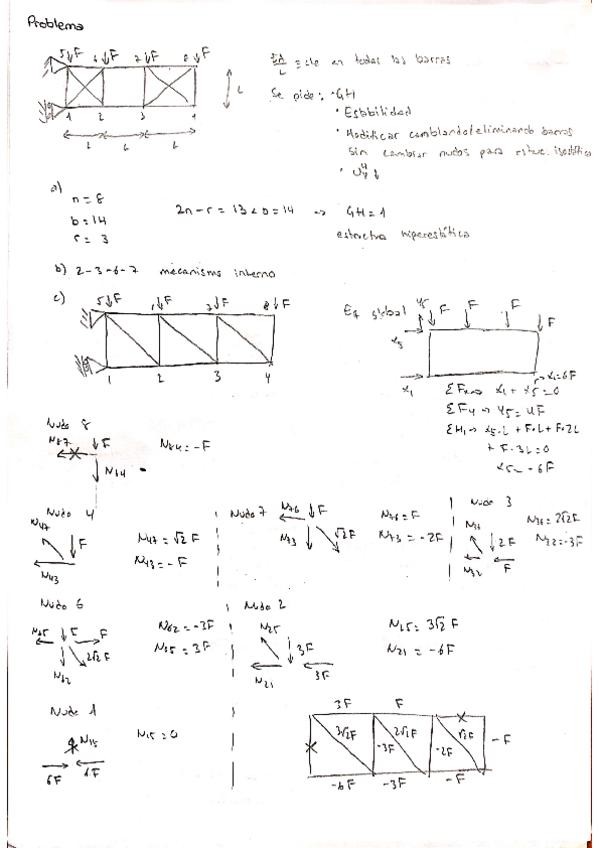 Problema
5 ↓F 6 ↓F 7 ↓F 8 ↓F
1 2 3 4
L
L L L
EA/L = cte en todas las barras
Se pide: · GH
· Estabilidad
· Modificar cambiando/eliminando barras
sin cambiar nudos para estruc. isostática
a)
n = 8
b = 14
r = 3
2n - r = 13 < b = 14 → GH = 1
estructura hiperestática
b) 2-3-6-7 mecanismo interno
c) 5 ↓F ↓F ↓F 8 ↓F
1 2 3 4
Eq global
F F F F
x5
x1
x1 = 6F
ΣFx → x1 + x5 = 0
ΣFy → y5 = 4F
ΣM1 → x5·L + F·L + F·2L
+ F·3L = 0
x5 = -6F
Nudo 8
N87 ↓F
N84
N84 = -F
Nudo 4
N47 F
N43
N47 = √2 F
N43 = -F
Nudo 7
N76 ↓F
N73 √2F
N76 = F
N73 = -2F
Nudo 3
2F
N32 F
N36 = 2√2F
N32 = -3F
Nudo 6
N65 F F
N62 2√2F
N62 = -3F
N65 = 3F
Nudo 2
N25
3F
N21 3F
N25 = 3√2 F
N21 = -6F
Nudo 1
N15
6F 6F
N15 = 0
3F F
3√2F -3F 2√2F -2F √2F -F
-6F -3F -F